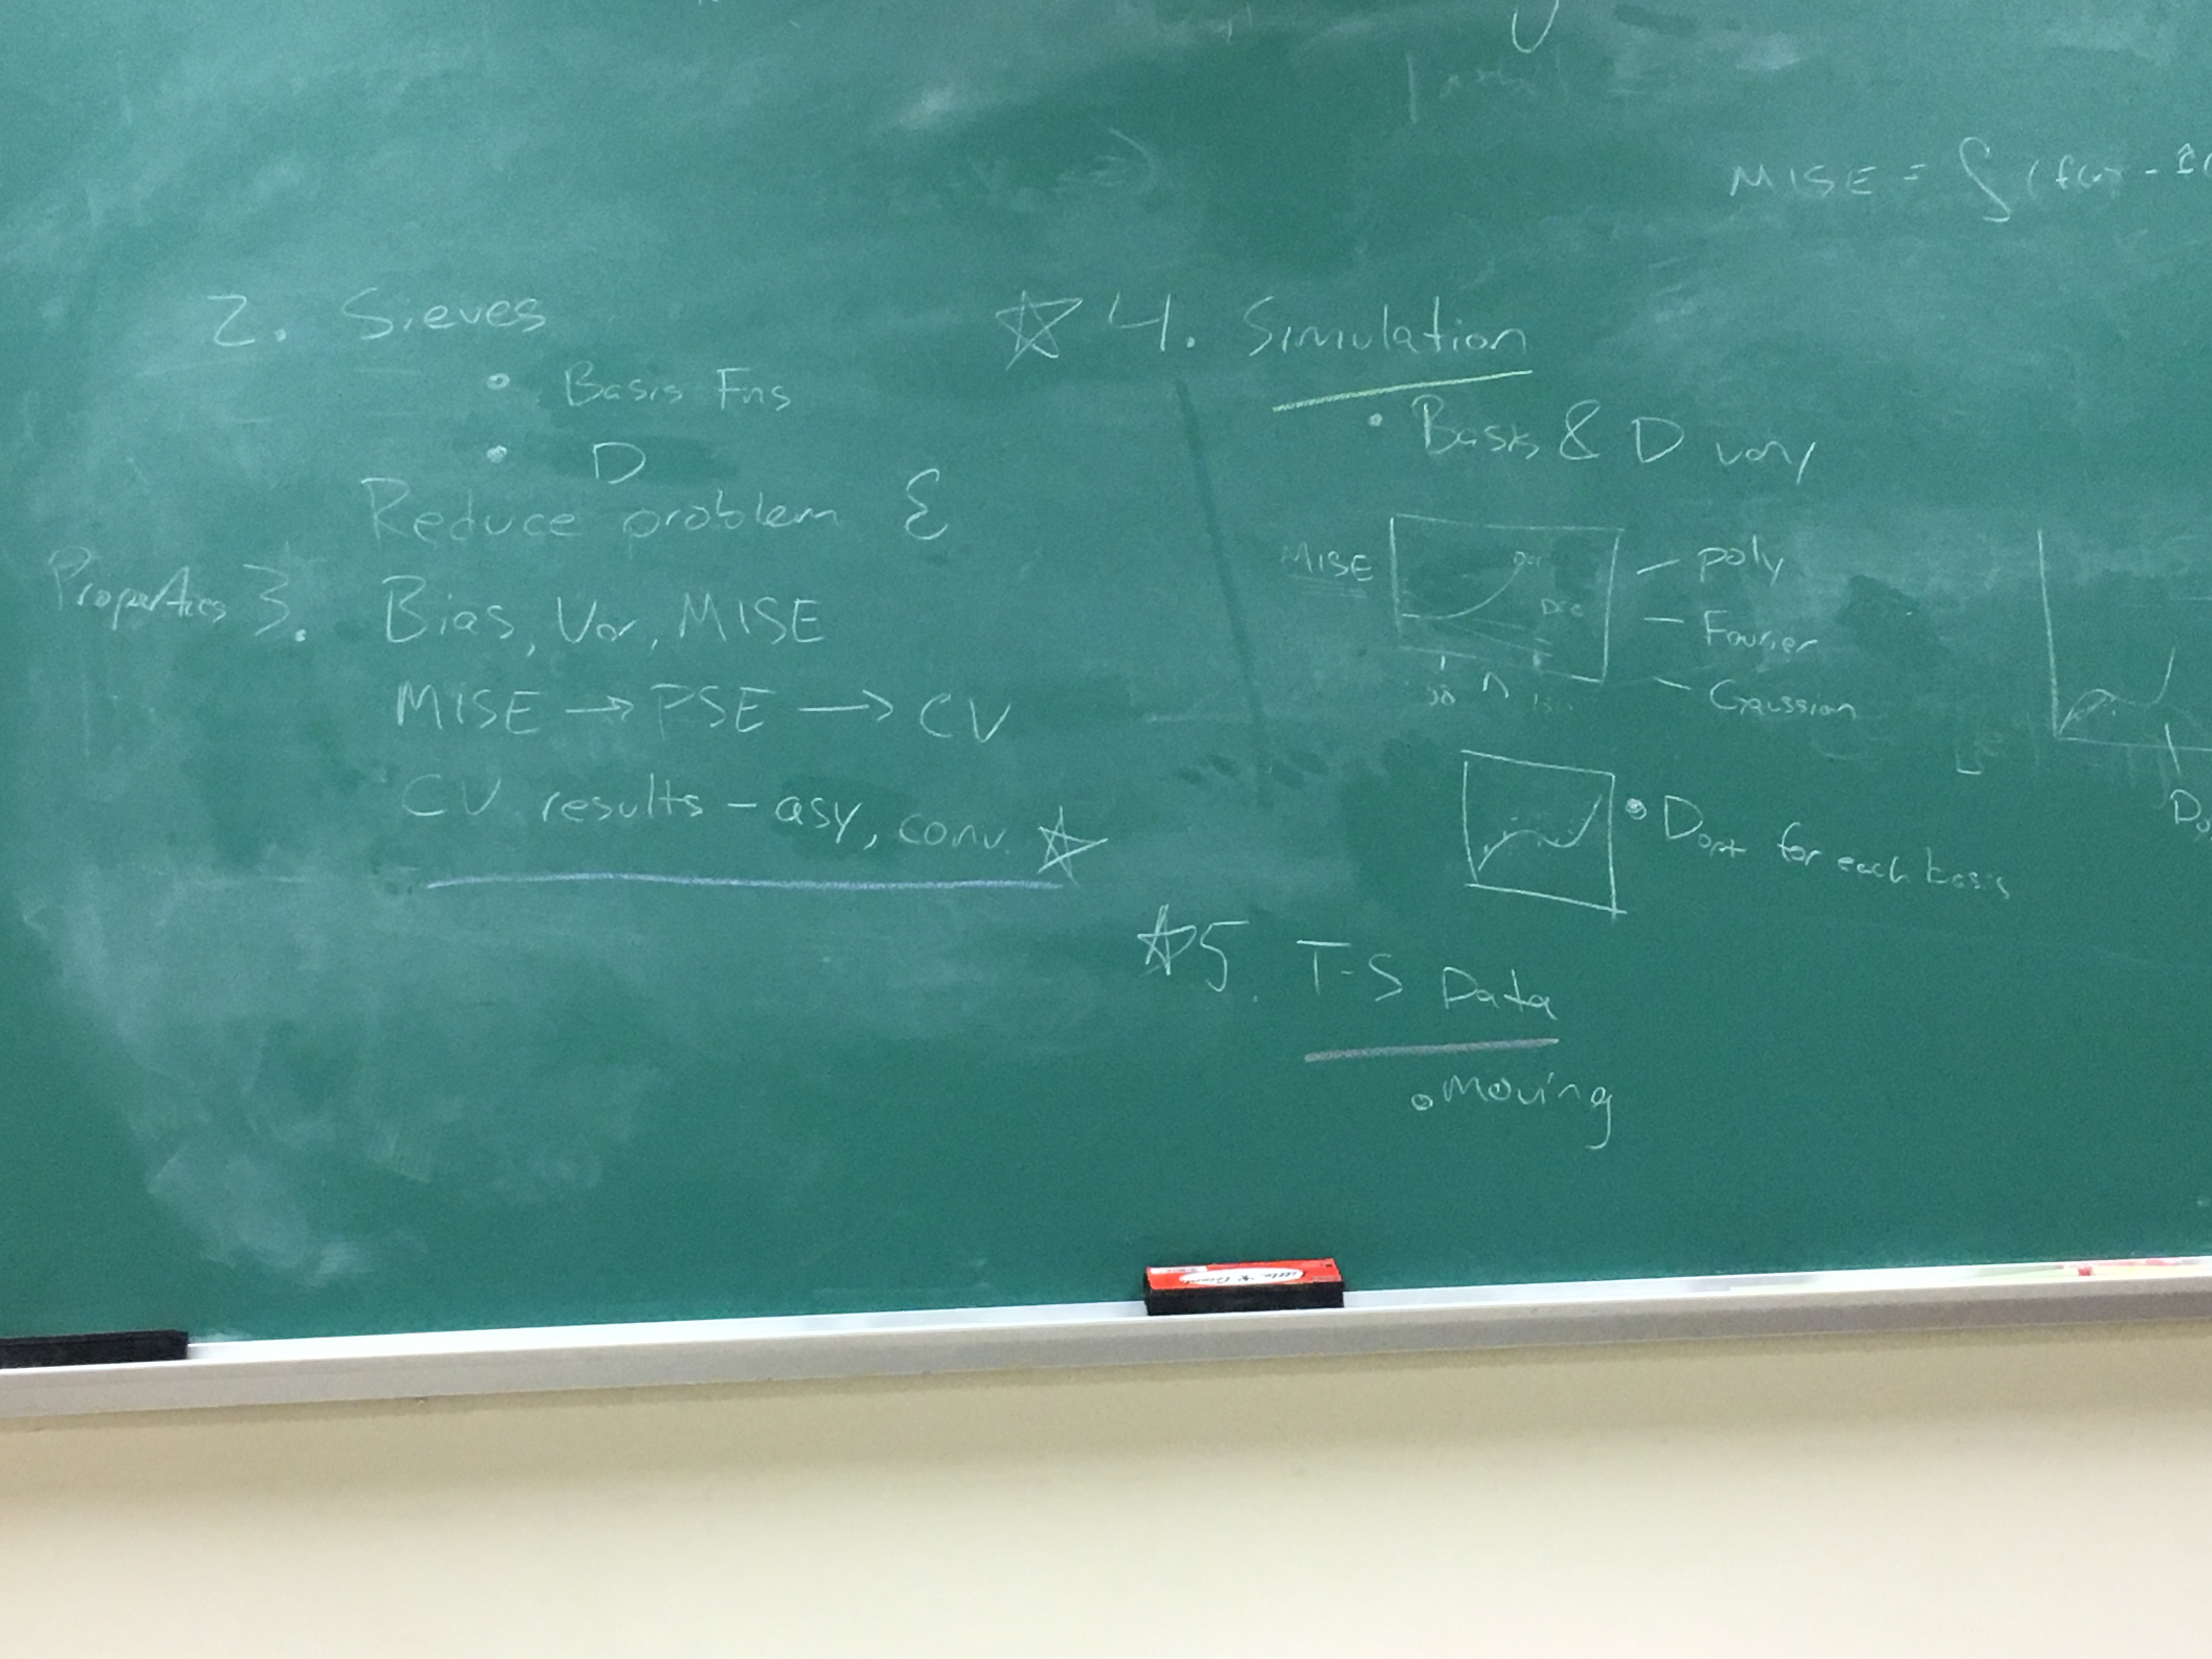 2. Sieves
• Basis Fns
• D
Reduce problem
Properties 3. Bias, Var, MISE
MISE → PSE → CV
CV results - asy, conv.
MISE = ∫(f(x) - f̂(
4. Simulation
• Basis & D vary
MISE
n
- poly
- Fourier
- Gaussian
• Dopt for each basis
5. T-S Data
• Moving